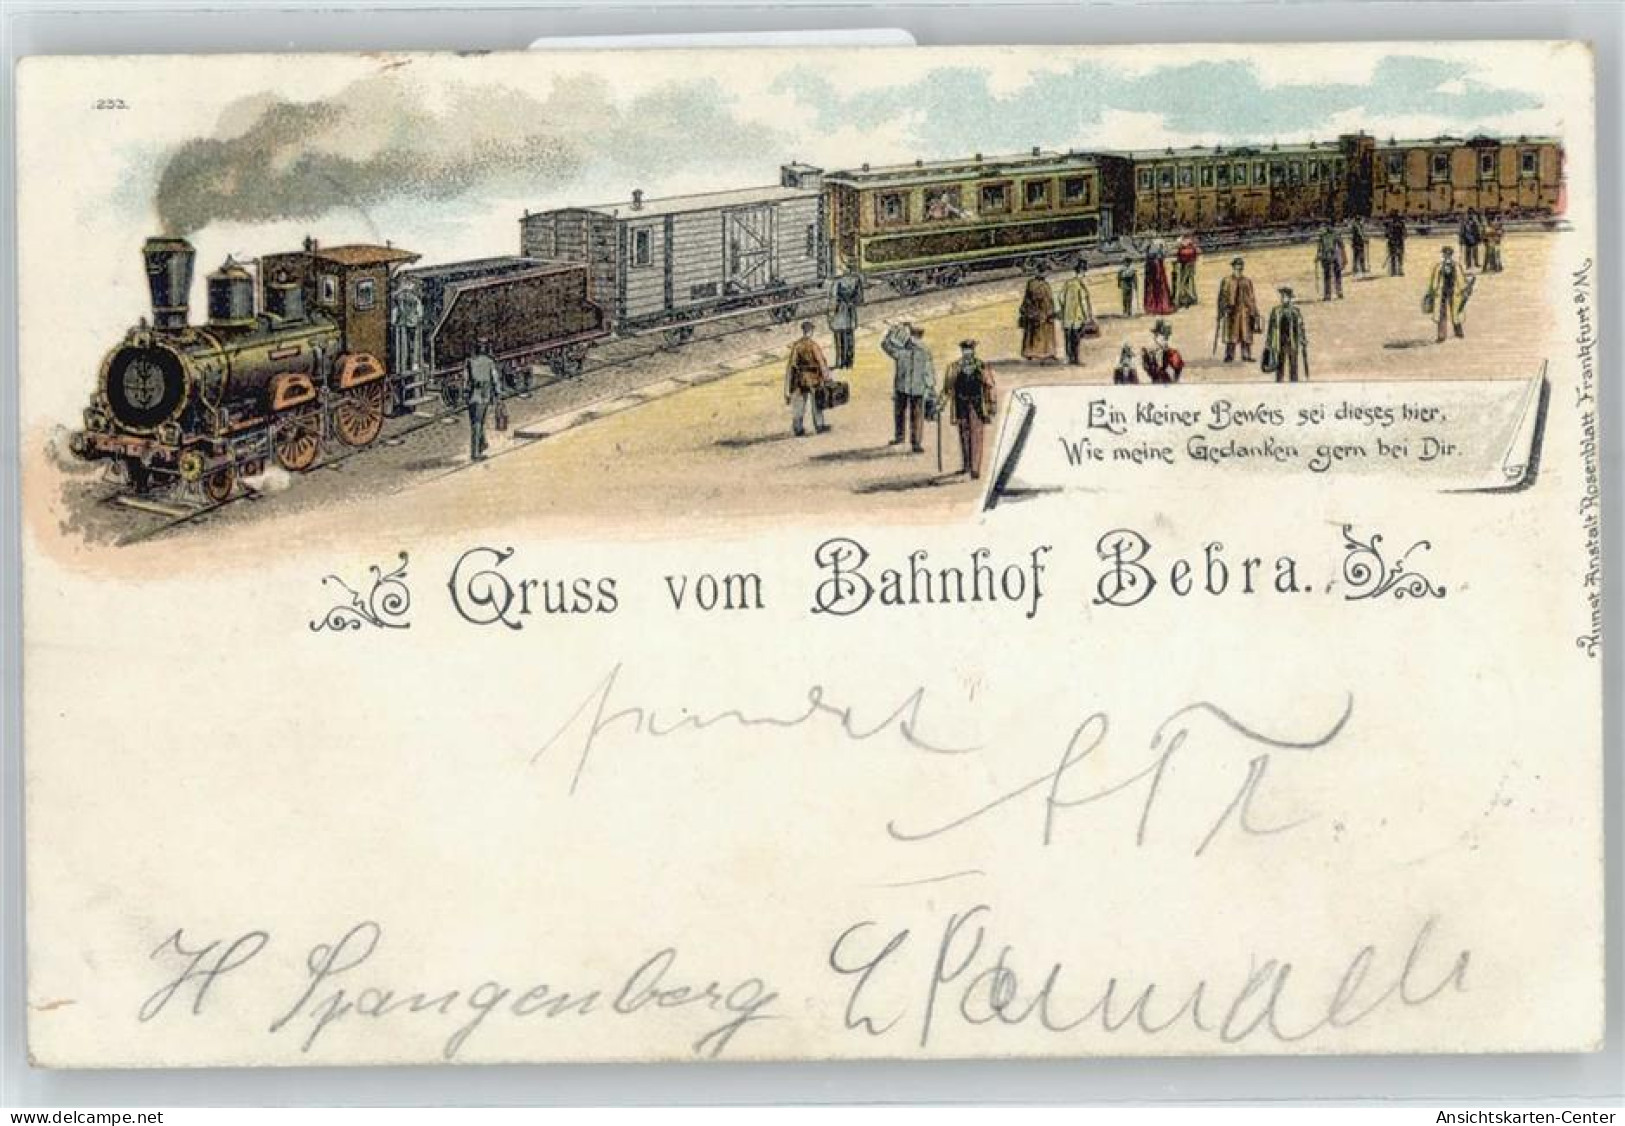 .233.
Ein kleiner Beweis sei dieses hier,
Wie meine Gedanken gern bei Dir.
Gruss vom Bahnhof Bebra.
Kunst Anstalt Rosenblatt Frankfurt a/M
H Spangenberg
delcampe.net
Ansichtskarten-Center